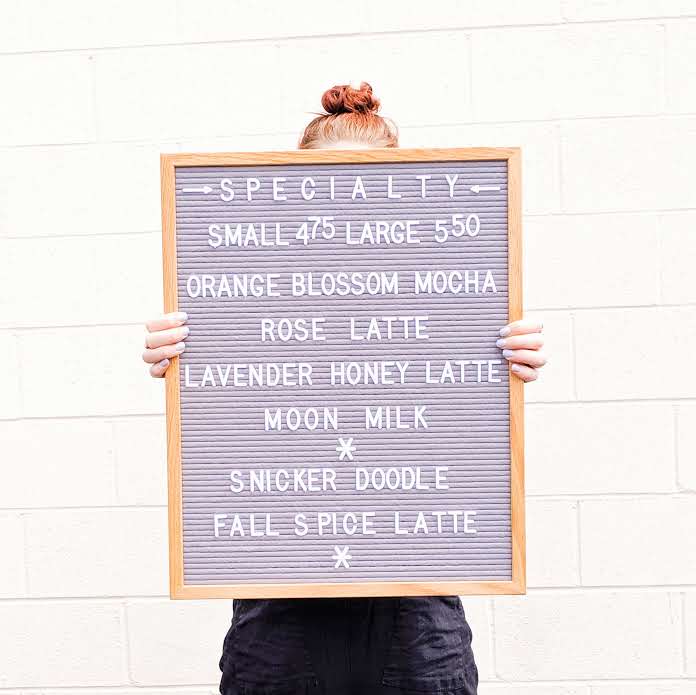 →SPECIALTY←
SMALL 475 LARGE 550
ORANGE BLOSSOM MOCHA
ROSE LATTE
LAVENDER HONEY LATTE
MOON MILK
*
SNICKER DOODLE
FALL SPICE LATTE
*